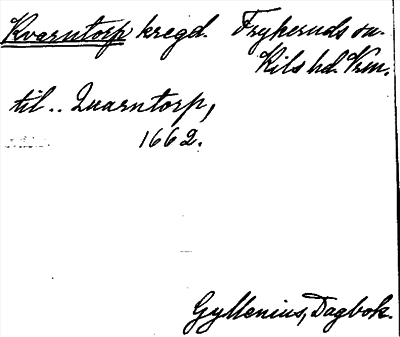 Kvarntorp kregd. Frykeruds sn.
Kils hd. Vrm.
til.. Quarntorp,
1662.
Gyllenius, Dagbok.